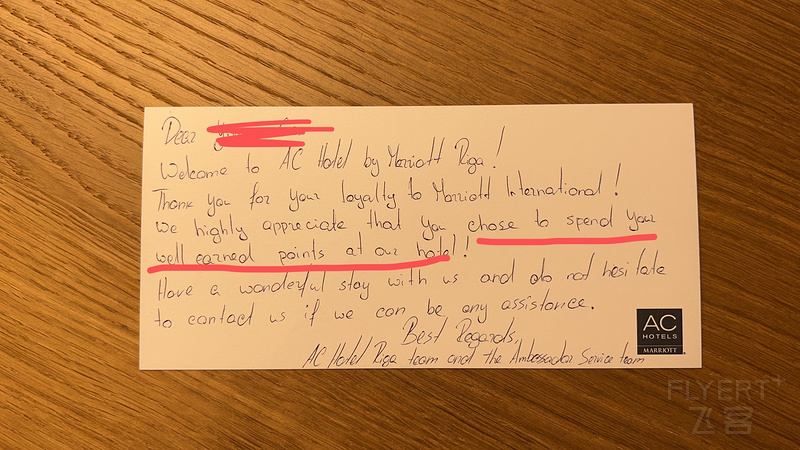 Dear
Welcome to AC Hotel by Marriott Riga!
Thank you for your loyalty to Marriott International!
We highly appreciate that you chose to spend your
well earned points at our hotel!
Have a wonderful stay with us and do not hesitate
to contact us if we can be any assistance.
Best Regards,
AC Hotel Riga team and the Ambassador Service team
AC
HOTELS
MARRIOTT
FLYERT+
飞客